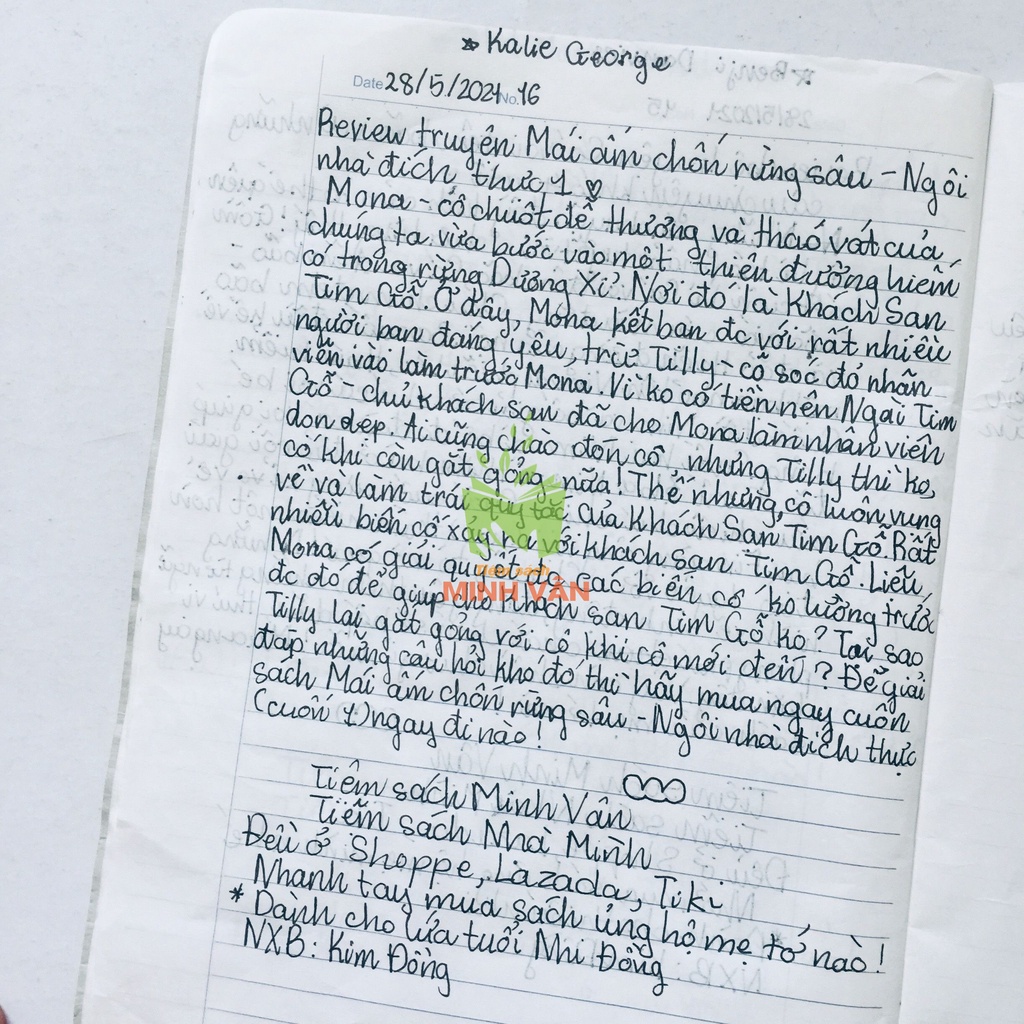 * Kalie George
Date 28/5/2021 No. 16
Review truyện Mái ấm chốn rừng sâu - Ngôi
nhà đích thực 1 ♡
Mona - cô chuột dễ thương và tháo vát của
chúng ta vừa bước vào một thiên đường hiếm
có trong rừng Dương Xỉ. Nơi đó là Khách Sạn
Tim Gỗ. Ở đây, Mona kết bạn đc với rất nhiều
người bạn đáng yêu, trừ Tilly - cô sóc đỏ nhân
viên vào làm trước Mona. Vì ko có tiền nên Ngài Tim
Gỗ - chủ khách sạn đã cho Mona làm nhân viên
dọn dẹp. Ai cũng chào đón cô, nhưng Tilly thì ko,
có khi còn gắt gỏng nữa! Thế nhưng, cô luôn vụng
về và làm trái quy tắc của Khách Sạn Tim Gỗ. Rất
nhiều biến cố xảy ra với khách sạn Tim Gỗ. Liệu
Mona có giải quyết đc các biến cố ko lường trước
đc đó để giúp cho Khách sạn Tim Gỗ ko? Tại sao
Tilly lại gắt gỏng với cô khi cô mới đến? Để giải
đáp những câu hỏi khó đó thì hãy mua ngay cuốn
sách Mái ấm chốn rừng sâu - Ngôi nhà đích thực
(cuốn 1) ngay đi nào!
Tiệm sách Minh Vân
Tiệm sách Nhà Mình
Đều ở Shoppe, Lazada, Tiki
Nhanh tay mua sách ủng hộ mẹ tớ nào!
* Dành cho lứa tuổi Nhi Đồng
NXB: Kim Đồng
Tiệm sách
MINH VÂN